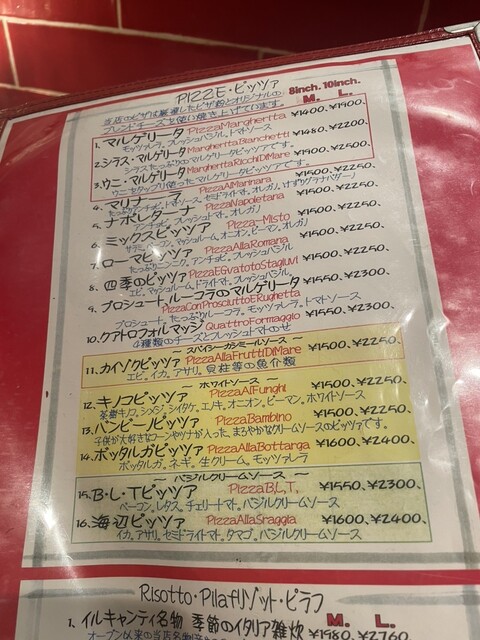 PIZZE・ピッツァ
8inch. 10inch.
当店のピザは厳選したピザ粉とオリジナルの
ブレンドチーズを使い焼き上げています。
M. L.
1. マルゲリータ PizzaMargheritta ¥1400、¥1900、
モッツァレラ、フレッシュバジル、トマトソース
2. シラス・マルゲリータ MargheritaBianchetti ¥1480、¥2200、
シラスたっぷりのマルゲリータピッツァです。
3. ウニ・マルゲリータ MargheritaRicchiDiMare ¥1900、¥2500、
ウニをタップリ使ったマルゲリータピッツァです。
4. マリナーラ PizzaAlMarinara ¥1500、¥2250、
たっぷりアンチョビ、トマトソース、セミドライトマト、オレガノ、けずりグラナパダーノ
5. ナポレターナ PizzaNapoletana ¥1500、¥2250、
アンチョビ、フレッシュトマト、オレガノ
6. ミックスピッツァ Pizza-Misto ¥1500、¥2250、
サラミ、ベーコン、マッシュルーム、オニオン、ピーマン、オレガノ
7. ローマピッツァ PizzaAllaRomana ¥1500、¥2250、
たっぷりニンニク、アンチョビ、フレッシュバジル
8. 四季のピッツァ PizzaEGivatotoStagiuvi ¥1500、¥2250、
エビ、マッシュルーム、ドライトマト、フレッシュバジル
9. プロシュートルーコラのマルゲリータ ¥1550、¥2300、
PizzaConProsciuttoERughetta
プロシュート、たっぷりルーコラ、モッツァレラ、トマトソース
10. クアトロフォルマッジ QuattroFormaggio ¥1550、¥2300、
4種類のチーズとフレッシュトマトのせ
～ スパイシーカシミールソース ～
11. カイゾクピッツァ PizzaAllaFruttiDiMare ¥1500、¥2250、
エビ、イカ、アサリ、貝柱等の魚介類
～ ホワイトソース ～
12. キノコピッツァ PizzaAlFunghi ¥1500、¥2250、
茶樹キノコ、シメジ、シイタケ、エノキ、オニオン、ピーマン、ホワイトソース
13. バンビーノピッツァ PizzaBambino ¥1500、¥2250、
子供が大好きなコーンやツナが入った、まろやかなクリームソースのピッツァです。
14. ボッタルガピッツァ PizzaAllaBottarga ¥1600、¥2400、
ボッタルガ、ネギ、生クリーム、モッツァレラ
～ バジルクリームソース ～
15. B・L・Tピッツァ PizzaB.L,T, ¥1550、¥2300、
ベーコン、レタス、チェリートマト、バジルクリームソース
16. 海辺ピッツァ PizzaAllaSraggia ¥1600、¥2400、
イカ、アサリ、セミドライトマト、タマゴ、バジルクリームソース
Risotto・Pilafリゾット・ピラフ
M. L.
1、イルキャンティ名物 季節のイタリア雑炊 ¥1980、¥2760
オープン以来の当店名物